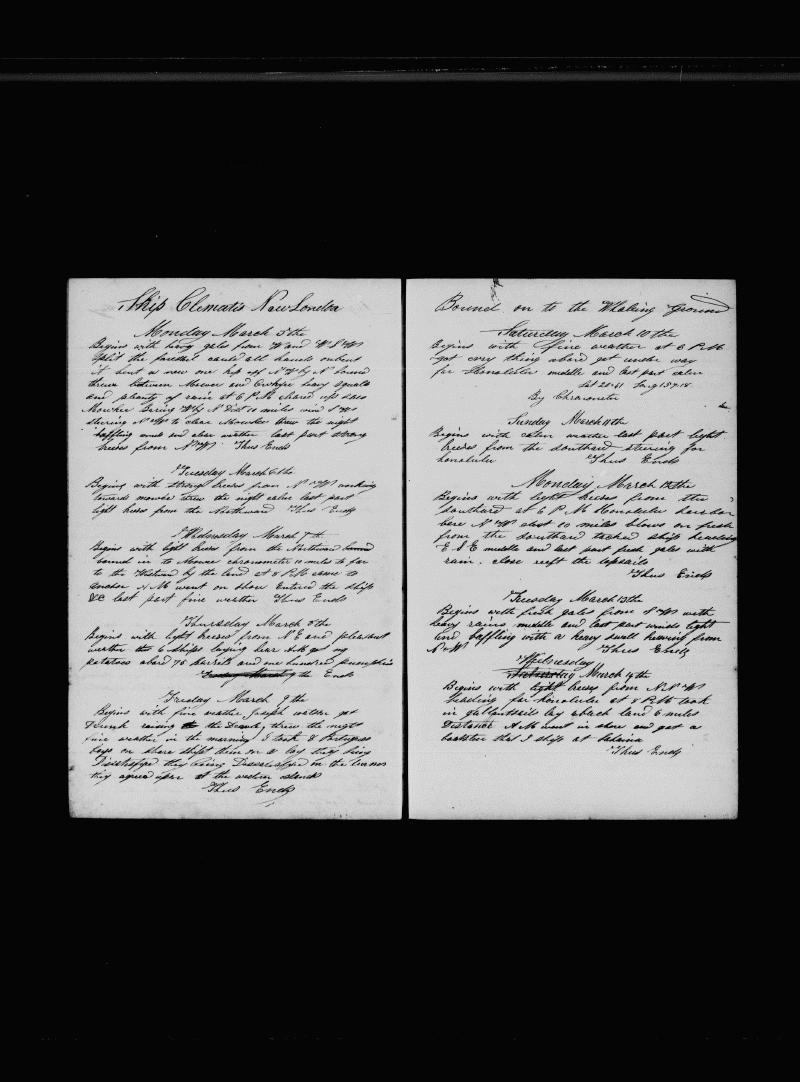 Ship Clematis New London
Monday March 5 the
Begins with heavy gales from W and W S W
Split the foresail called all hands unbent
it bent a new one kep off N W by N
threw between Mowee and heavy squals
and plenty of rain at 6 P M
Mowkee W by N Dist 10 miles wind S W
stering N W to clear threw the night
baffling winds and clear weather last part strong
breses from N W Thus Ends
Tuesday March 6 the
Begins with strong breses from N W working
towards mowee threw the night calm last part
light breses from the Northward Thus Ends
Wednesday March 7 th
Begins with light breses from the Northward bound
bound in to Mowee chronometer 10 miles to far
to the Westward by the land at 8 P M came to
anchor A M went on shore Entered the ship
&C last part fine weather Thus Ends
Thursday March 8 the
Begins with light breses from N E and pleasant
weather 6 ships laying hear A M got my
potatoes abord 75 barrels and one hundred pumpkins
the Ends
Friday March 9 the
Begins with fine weather Joseph got
Drunk the threw the night
fine weather in the morning I took 8 Portugees
boys on shore shipt them on a lay they being
they being Dissatisfyed on the
they agreed upon at the western islands
Thus Ends
Bound on to the Whaling Ground
Saturday March 10 the
Begins with fine weather at 6 P M
got evry thing abord got under way
for Honolulu middle and last part calm
Lat 20-41 Long 157-18
By Chronometer
Sunday March 11 the
Begins with calm weather last part light
breses from the southard steering for
honolulu Thus Ends
Monday March 12 the
Begins with light breses from the
southard at 6 P M Honolulu harbor
bare N W dist 10 miles blows on fresh
from the southard tacked ship heading
E S E middle and last part fresh gales with
rain close reeft the topsails
Thus Ends
Tuesday March 13 the
Begins with fresh gales from S W with
heavy rains middle and last part winds light
and baffling with a heavy swell heaving from
N W Thus Ends
Wednesday
Saturday March 14 the
Begins with light breses from N N W
heading for honolulu at 8 P M took
in gallantsails lay aback land 6 miles
Distance A M went in shore and got a
boatsteerer that I shipt at Lahaina
Thus Ends